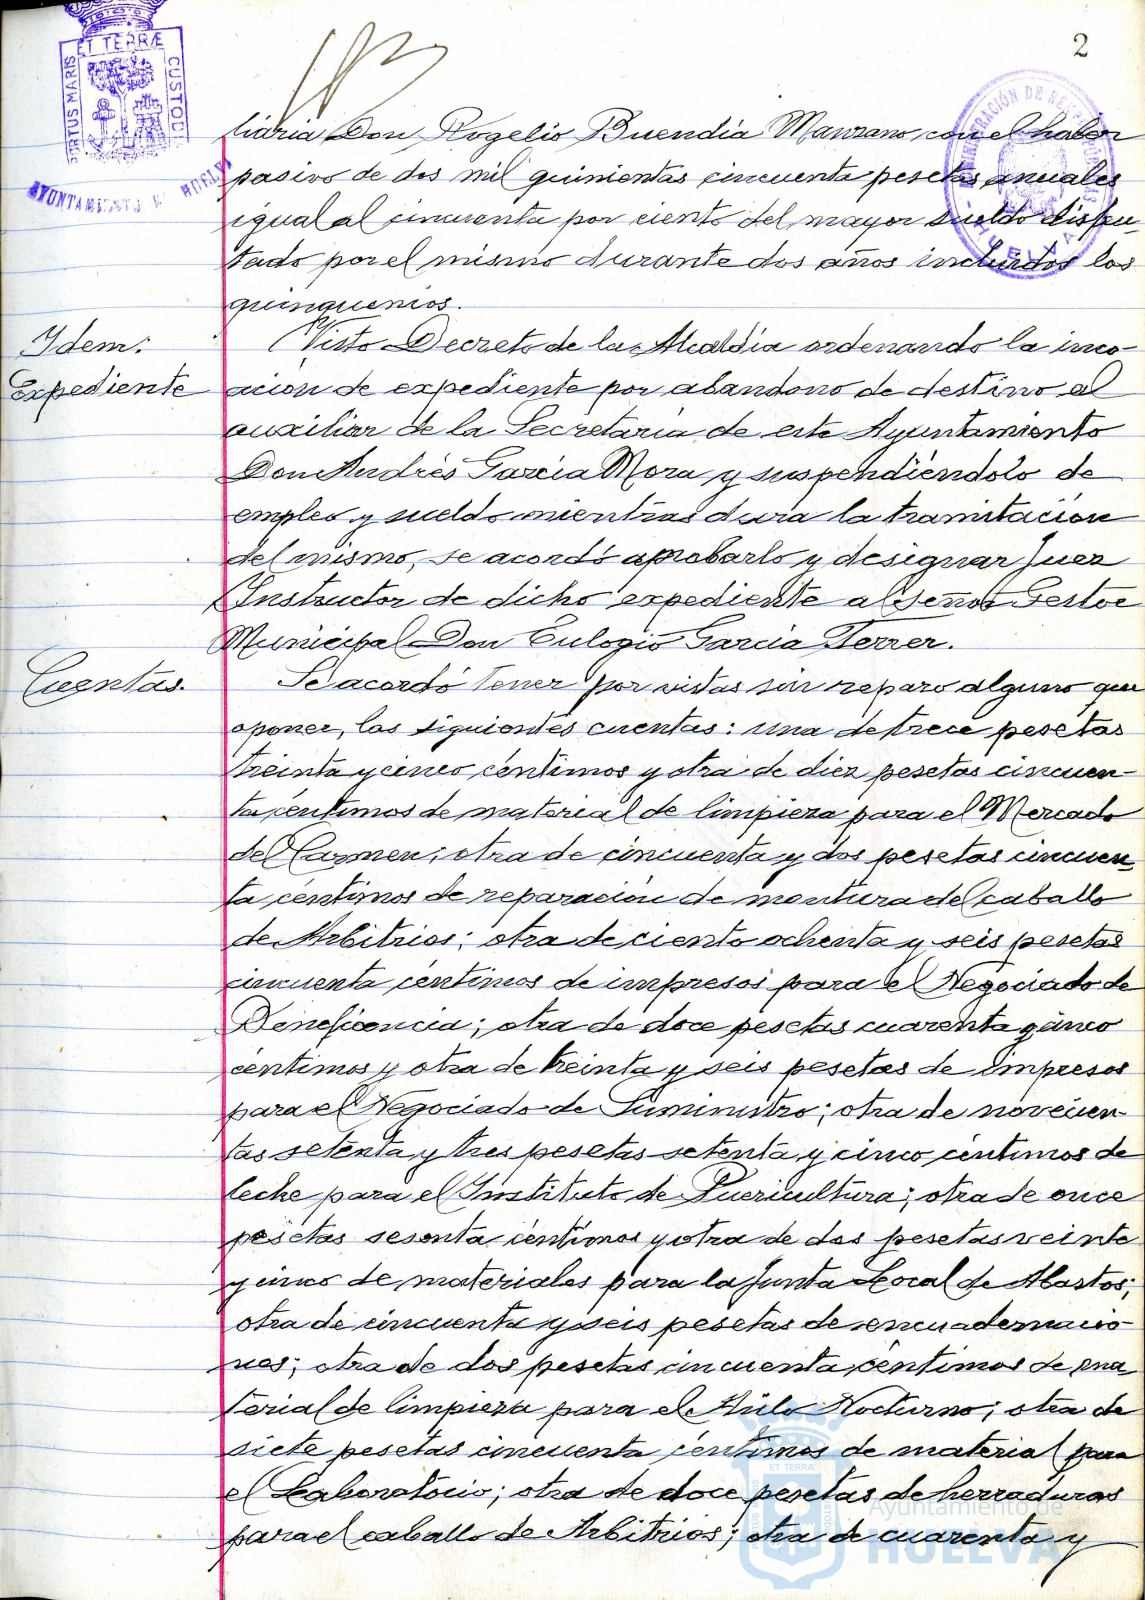 2
PORTUS MARIS ET TERRÆ CUSTODI
AYUNTAMIENTO DE HUELVA
liaria Don Rogelio Buendia Manzano, con el haber
pasivo de dos mil quinientas cincuenta pesetas anuales
igual al cincuenta por ciento del mayor sueldo disfru-
tado por el mismo durante dos años incluidos los
quinquenios.
Idem:
Expediente
Visto Decreto de la Alcaldía ordenando la inco-
ación de expediente por abandono de destino al
auxiliar de la Secretaria de este Ayuntamiento
Don Andrés García Mora y suspendiéndolo de
empleo y sueldo mientras dura la tramitación
del mismo, se acordó aprobarlo y designar Juez
Instructor de dicho expediente al señor Gestor
Municipal Don Eulogio García Ferrer.
Cuentas.
Se acordó tener por vistas sin reparo alguno que
oponer, las siguientes cuentas: una de trece pesetas
treinta y cinco céntimos y otra de diez pesetas cincuen-
ta céntimos de material de limpieza para el Mercado
del Carmen; otra de cincuenta y dos pesetas cincuen-
ta céntimos de reparación de montura del caballo
de Arbitrios; otra de ciento ochenta y seis pesetas
cincuenta céntimos de impresos para el Negociado de
Beneficencia; otra de doce pesetas cuarenta y cinco
céntimos y otra de treinta y seis pesetas de impresos
para el Negociado de Suministro; otra de novecien-
tas setenta y tres pesetas setenta y cinco céntimos de
leche para el Instituto de Puericultura; otra de once
pesetas sesenta céntimos y otra de dos pesetas veinte
y cinco de materiales para la Junta Local de Abastos;
otra de cincuenta y seis pesetas de encuadernacio-
nes; otra de dos pesetas cincuenta céntimos de ma
terial de limpieza para el Asilo Nocturno; otra de
siete pesetas cincuenta céntimos de material para
el Laboratorio; otra de doce pesetas de herraduras
para el caballo de Arbitrios; otra de cuarenta y
Ayuntamiento de
HUELVA